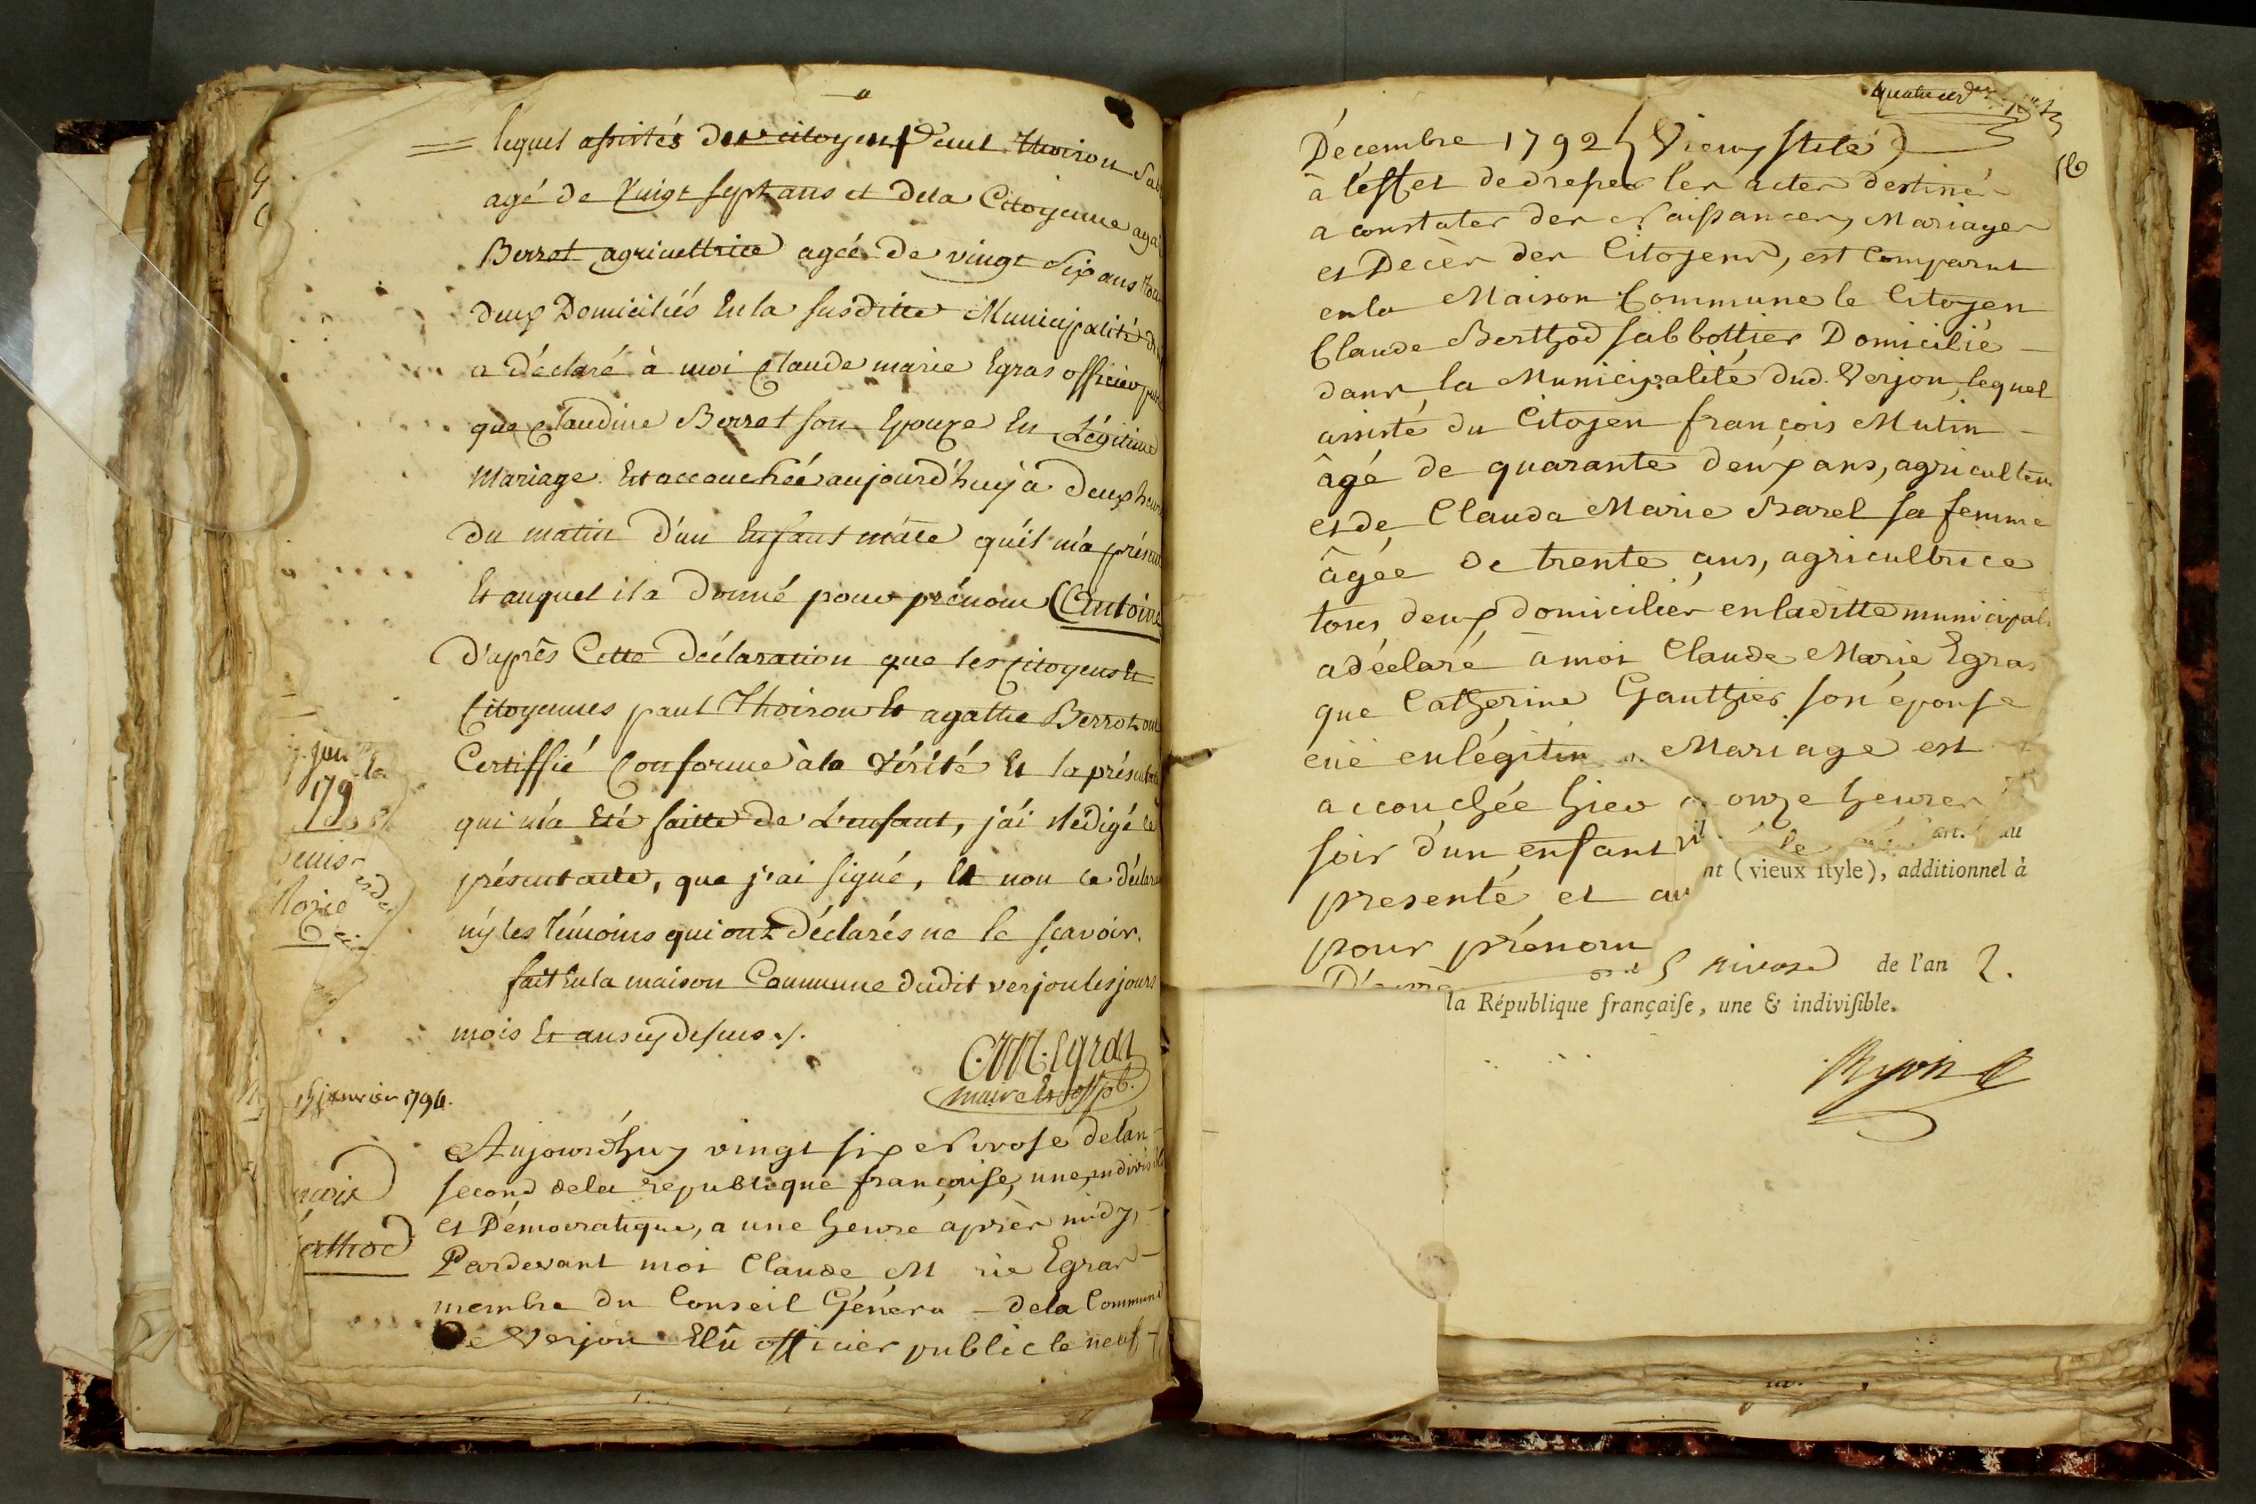 lequel assistés des citoyens Paul Thoiron
agé de Vuigt sept ans et dela Citoyenne
Berrot agricultrice agée de vingt Six ans tous
deux Domiciliés En la susditte Municipalité
a déclaré à moi Claude marie Egras officier
que Claudine Berrot son Epouze En Légitime
Mariage Est accouchée aujourd'huÿ à deux
du matin d'un Enfant mâle qu'il m'a
Et auquel il a Donné pour prénom Antoine
D'après Cette déclaration que les Citoyens Et
Citoyennes paul Thoiron Et agathe Berrot ont
Certiffié Conforme à la Vérité Et la
qui m'a Eté faitte de L'enfant, j'ai Rédigé le
présent acte, que j'ai signé, Et non le
nÿ les témoins qui ont déclarés ne le sçavoir.
fait En la maison Commune dudit verjon les jours
mois Et an cy dessus ./.
C.M. Egras
maire Et off pb.
janvier 1794.
Berthod
Aujourd'huy vingt six Nivose de lan
second de la republique françoise, une, indivisible
et Démocratique, a une heure après midy,
Pardevant moi Claude M rie Egras
membre du Conseil Généra dela Commune
De Verjon Elû officier public le neuf
Décembre 1792 (Vieux stile)
à l'effet de dresser les actes destiné
a constater des Naissances, Mariages
et Décès des Citoyens, est Comparut
en la Maison Commune le Citoyen
Claude Berthod sabbottier Domicilié
dans la Municipalité dud. Verjon, lequel
assisté du Citoyen françois Mutin
âgé de quarante deux ans, agriculteur
et de Clauda Marie Barel sa femme
âgée de trente ans, agricultrice
tous deux domiciliés en laditte
a déclaré à moi Claude Marie Egras
que Catherine Gauthier son épouse
en légitim Mariage est
accouchée hier a onze heures
soir d'un enfant
presenté et au
pour prénom
nt (vieux style), additionnel à
5 nivose de l'an 2.
la République françaiſe, une & indiviſible.